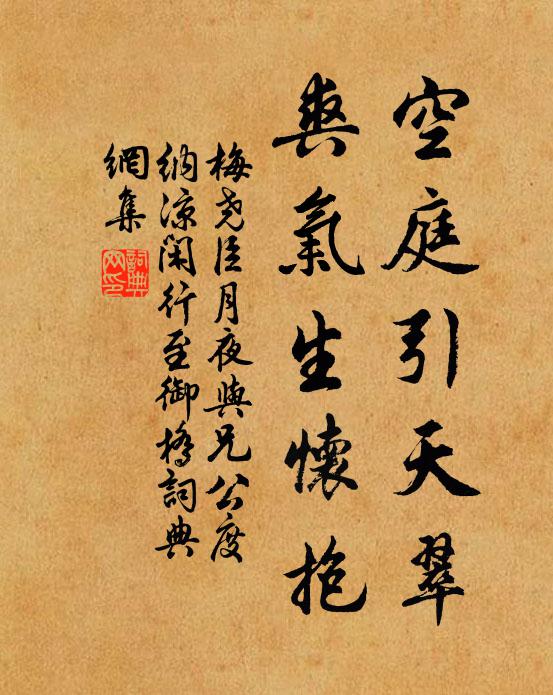 空庭引天翠
爽氣生懷抱
梅堯臣月夜與兄公度
納涼閑行至御橋詞典
網集
詞典
网印